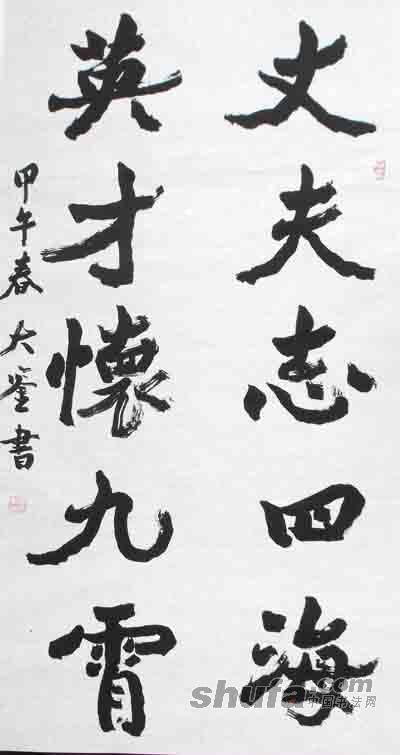 丈夫志四海
英才懷九霄
甲午春 大鉴書
shufa.com
中国书法网